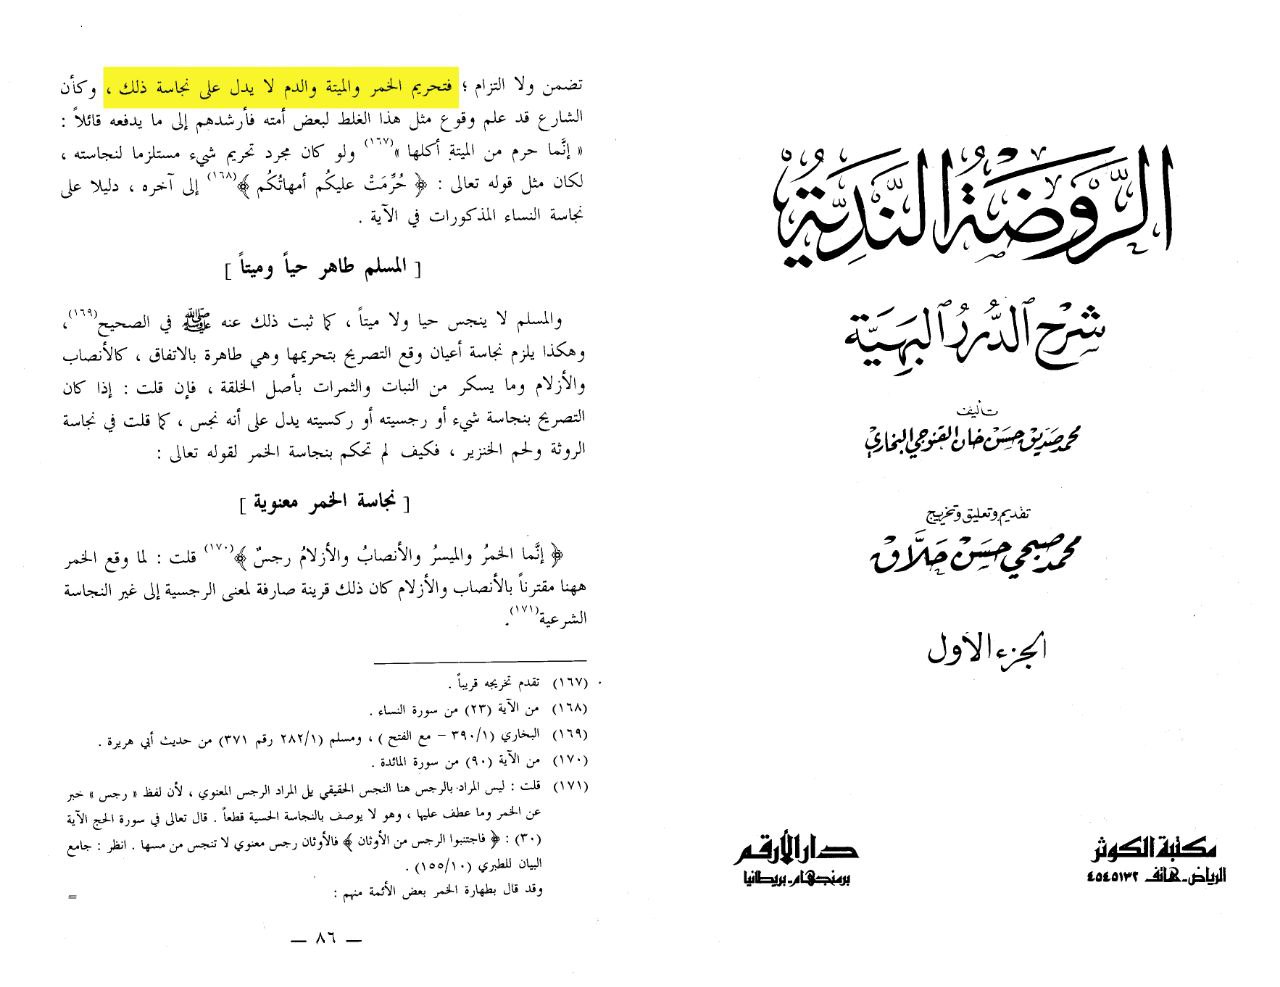 الروضة الندية
شرح الدرر البهية
تأليف
محمد صديق حسن خان القنوجي البخاري
تقديم وتعليق وتخريج
محمد صبحي حسن حلاق
الجزء الأول
مكتبة الكوثر
الرياض - هاتف ٤٥٤٥١٣٢
دار الأرقم
برمنجهام - بريطانيا
تضمن ولا التزام ؛ فتحريم الخمر والميتة والدم لا يدل على نجاسة ذلك ، وكأن
الشارع قد علم وقوع مثل هذا الغلط لبعض أمته فأرشدهم إلى ما يدفعه قائلاً :
« إنَّما حرم من الميتة أكلها »(١٦٧) ولو كان مجرد تحريم شيء مستلزما لنجاسته ،
لكان مثل قوله تعالى : ﴿ حُرِّمَتْ عليكُم أمهاتُكُم ﴾(١٦٨) إلى آخره ، دليلا على
نجاسة النساء المذكورات في الآية .
[ المسلم طاهر حياً وميتاً ]
والمسلم لا ينجس حيا ولا ميتاً ، كما ثبت ذلك عنه ﷺ في الصحيح(١٦٩)،
وهكذا يلزم نجاسة أعيان وقع التصريح بتحريمها وهي طاهرة بالاتفاق ، كالأنصاب
والأزلام وما يسكر من النبات والثمرات بأصل الخلقة ، فإن قلت : إذا كان
التصريح بنجاسة شيء أو رجسيته أو ركسيته يدل على أنه نجس ، كما قلت في نجاسة
الروثة ولحم الخنزير ، فكيف لم تحكم بنجاسة الخمر لقوله تعالى :
[ نجاسة الخمر معنوية ]
﴿ إنَّما الخمرُ والميسرُ والأنصابُ والأزلامُ رجسٌ ﴾(١٧٠) قلت : لما وقع الخمر
ههنا مقترناً بالأنصاب والأزلام كان ذلك قرينة صارفة لمعنى الرجسية إلى غير النجاسة
الشرعية(١٧١).
(١٦٧) تقدم تخريجه قريباً .
(١٦٨) من الآية (٢٣) من سورة النساء .
(١٦٩) البخاري (٣٩٠/١ – مع الفتح ) ، ومسلم (٢٨٢/١ رقم ٣٧١) من حديث أبي هريرة .
(١٧٠) من الآية (٩٠) من سورة المائدة .
(١٧١) قلت : ليس المراد بالرجس هنا النجس الحقيقي بل المراد الرجس المعنوي ، لأن لفظ « رجس » خبر
عن الخمر وما عطف عليها ، وهو لا يوصف بالنجاسة الحسية قطعاً . قال تعالى في سورة الحج الآية
(٣٠) : ﴿ فاجتنبوا الرجس من الأوثان ﴾ فالأوثان رجس معنوي لا تنجس من مسها . انظر : جامع
البيان للطبري (١٥٥/١٠) .
وقد قال بطهارة الخمر بعض الأئمة منهم :
=
— ٨٦ —